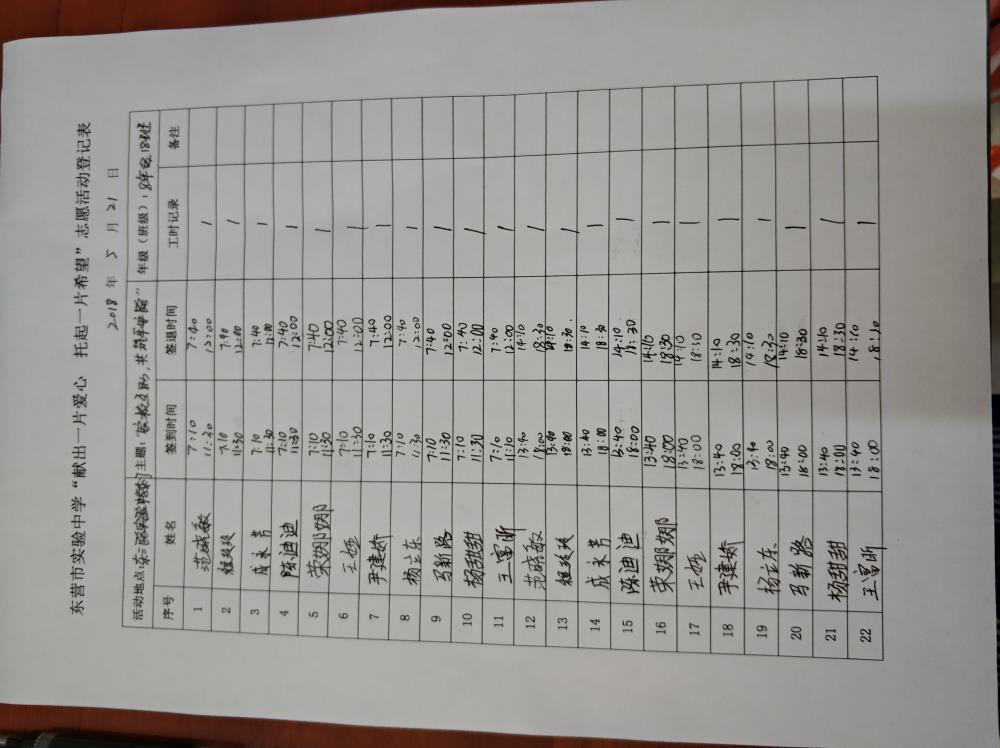 东营市实验中学“献出一片爱心 托起一片希望”志愿活动登记表
2018 年 5 月 21 日
活动地点: 主题: 年级（班级）:
序号 姓名 签到时间 签退时间 工时记录 备注
1 范晓敏 7:10 11:30 7:40 12:00 1
2 7:10 11:30 7:40 12:00 1
3 成永芳 7:10 11:30 7:40 12:00 1
4 陈迪迪 7:10 11:30 7:40 12:00 1
5 荣娜娜 7:10 11:30 7:40 12:00 1
6 王娅 7:10 11:30 7:40 12:00 1
7 尹建娇 7:10 11:30 7:40 12:00 1
8 杨立东 7:10 11:30 7:40 12:00 1
9 马新路 7:10 11:30 7:40 12:00 1
10 杨甜甜 7:10 11:30 7:40 12:00 1
11 王富昕 7:10 7:40 12:00 1
12 范晓敏 13:40 18:00 14:10 18:30 1
13 13:40 18:00 14:10 18:30 1
14 成永芳 13:40 18:00 14:10 18:30 1
15 陈迪迪 13:40 18:00 14:10 18:30 1
16 荣娜娜 13:40 18:00 14:10 18:30 1
17 王娅 13:40 18:00 14:10 18:30 1
18 尹建娇 13:40 18:00 14:10 18:30 1
19 杨立东 13:40 18:00 14:10 18:30 1
20 马新路 13:40 18:00 14:10 18:30 1
21 杨甜甜 13:40 18:00 14:10 18:30 1
22 王富昕 13:40 18:00 14:10 18:30 1